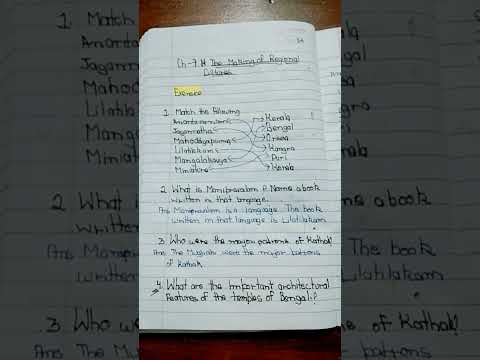 Ch-7 The Making of Regional
Cultures
Exercise
1. Match the following
Anantavarman Kerala
Jagannatha Bengal
Mahodayapuram Orissa
Lilatilakam Kangra
Mangalakavya Puri
Miniature Kerala
2. What is Manipravalam? Name a book
written in that language.
Ans Manipravalam is a language. The book
written in that language is Lilatilakam
3. Who were the major patrons of Kathak?
Ans The Mughals were the major patrons
of Kathak.
4. What are the important architectural
features of the temples of Bengal?